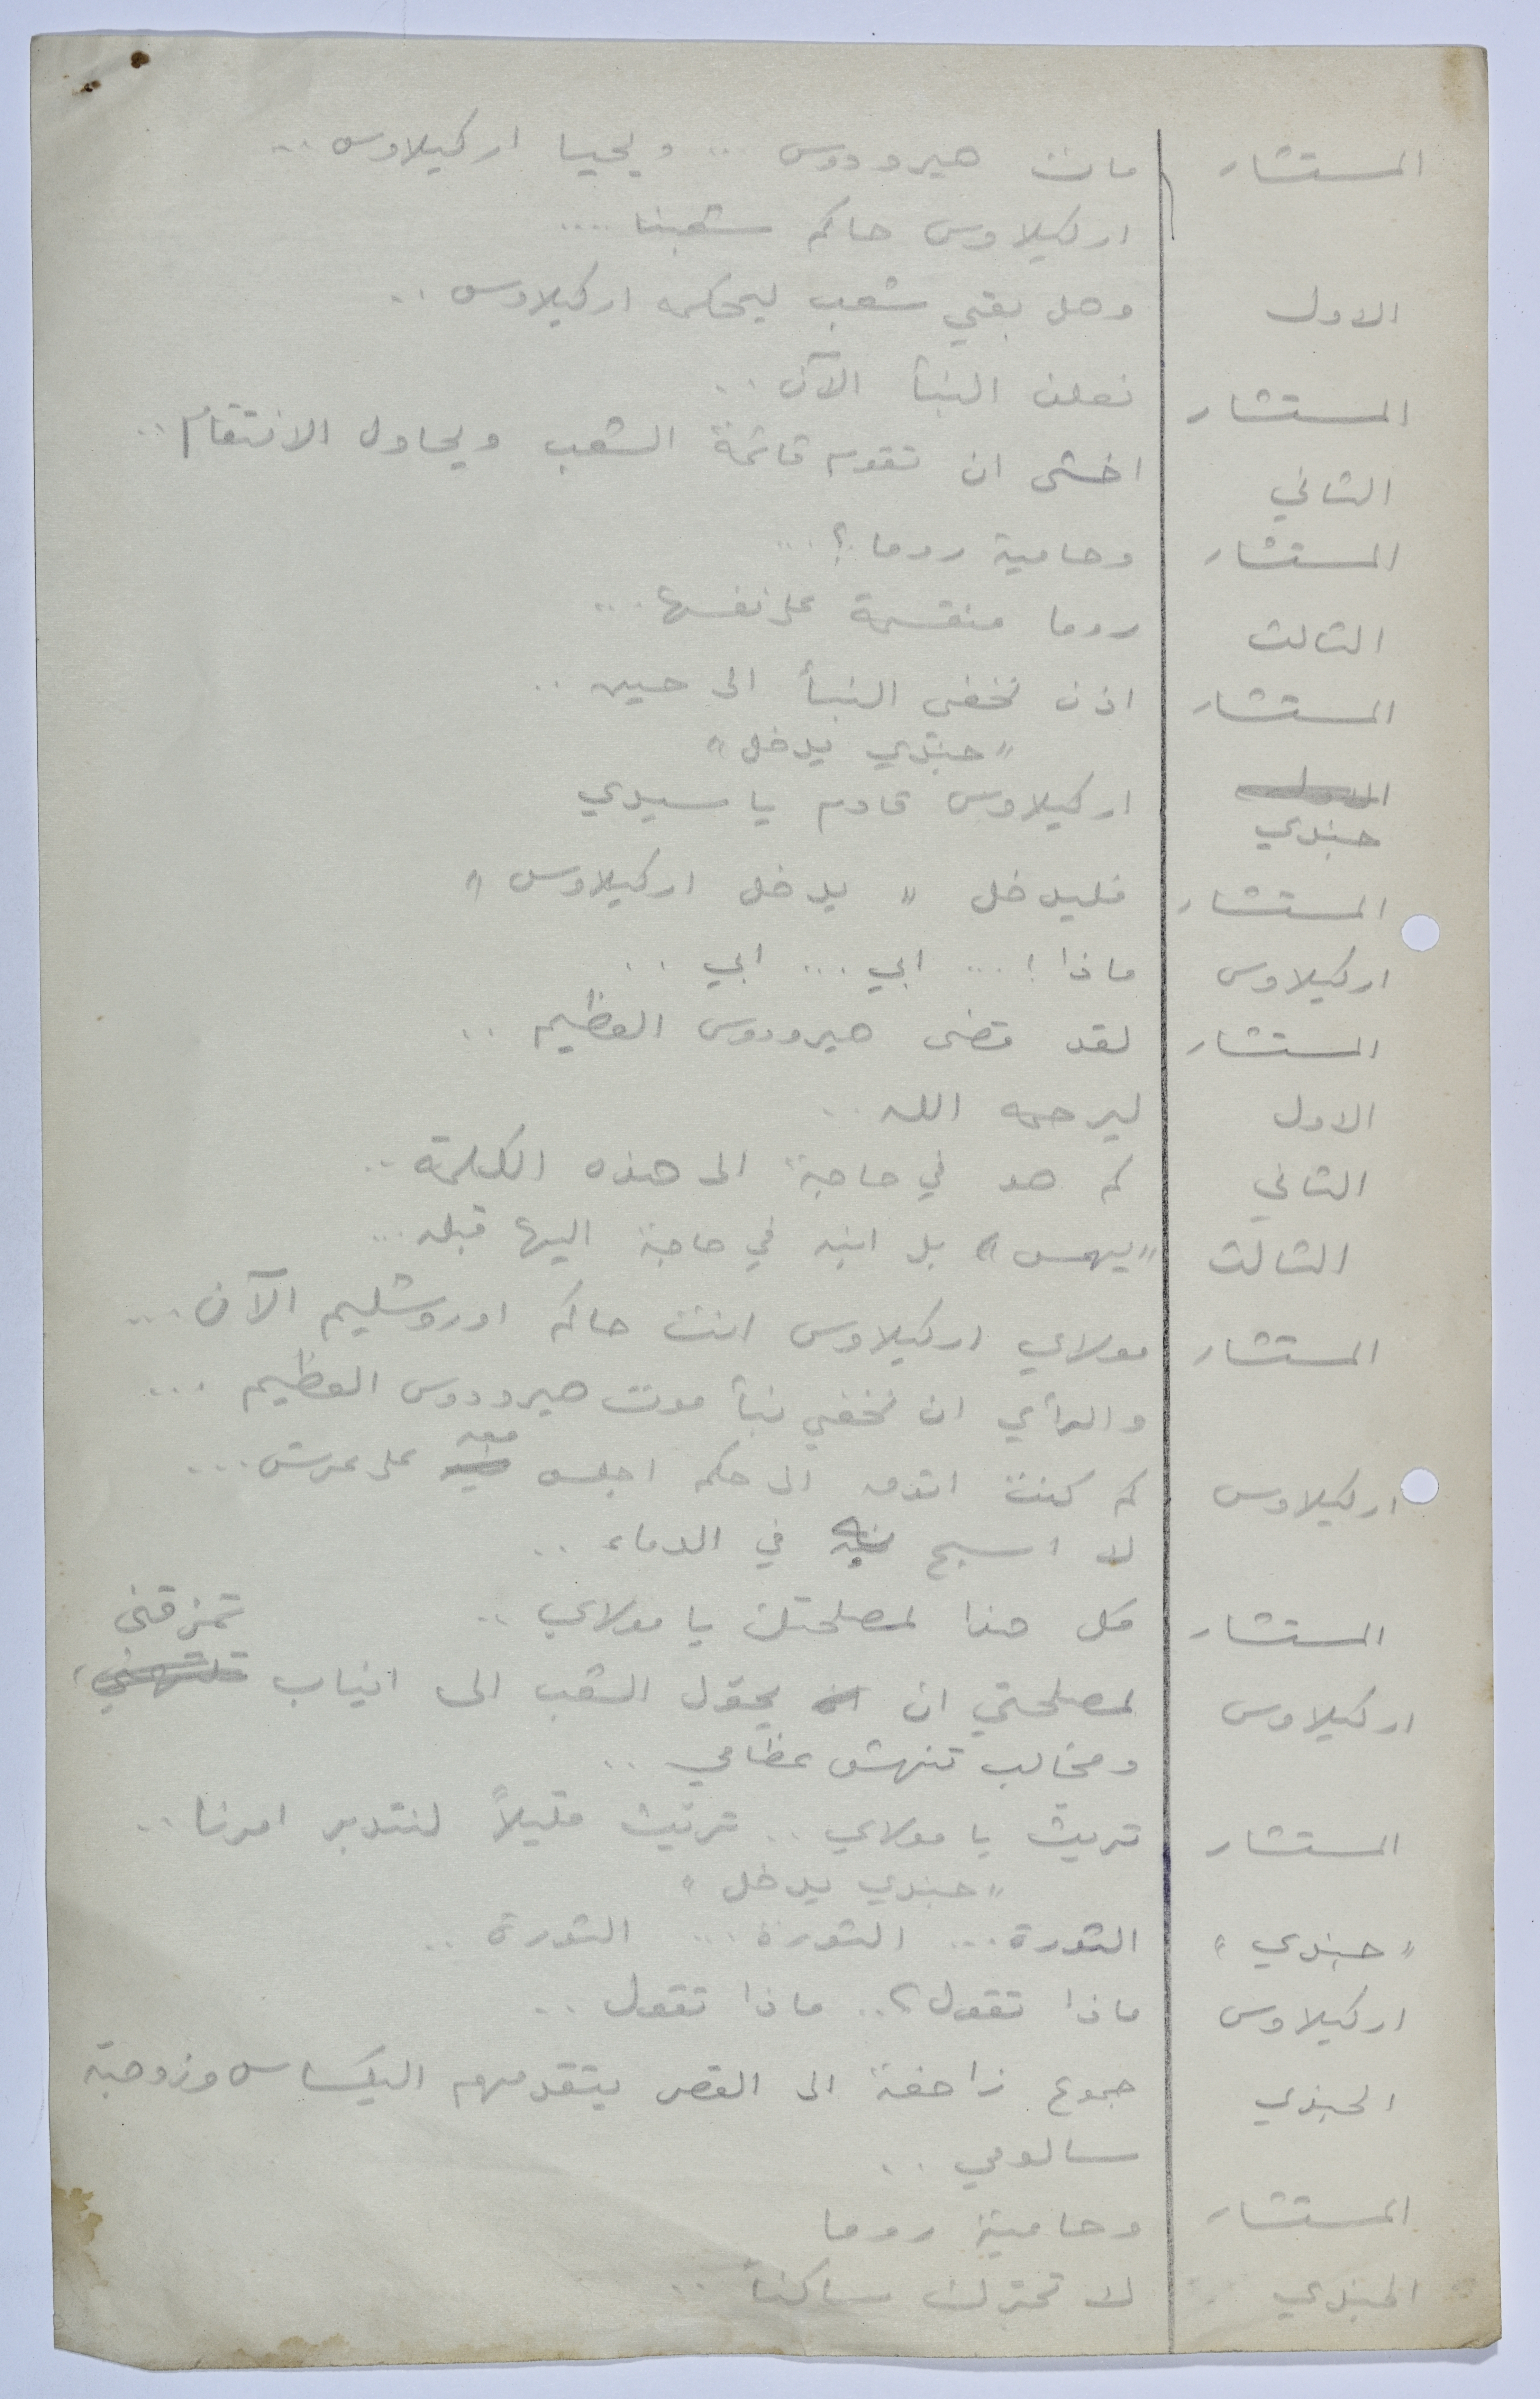 المستشار مات هيرودوس ... ويحيا اركيلاوس ..
اركيلاوس حاكم شعبنا ....
الاول وهل بقي شعب ليحكمه اركيلاوس ..
المستشار نعلن النبأ الآن ..
الثاني اخشى ان تقوم قائمة الشعب ويحاول الانتقام ..
المستشار وحامية روما ؟ ...
الثالث روما منقسمة على نفسها ...
المستشار اذن نخفي النبأ الى حين ..
" جندي يدخل "
جندي اركيلاوس قادم يا سيدي
المستشار فليدخل " يدخل اركيلاوس "
اركيلاوس ماذا ! ... ابي ... ابي ..
المستشار لقد قضى هيرودوس العظيم ..
الاول ليرحمه الله ..
الثاني كم هو في حاجة الى هذه الكلمة ..
الثالث "يهمس" بل ابنه في حاجة اليها قبله ...
المستشار مولاي اركيلاوس انت حاكم اوروشليم الآن ...
والرأي ان نخفي نبأ موت هيرودوس العظيم ...
اركيلاوس كم كنت اتوق الى حكم اجلس معه على عرش ...
لا اسبح في الدماء ..
المستشار كل هذا لمصلحتك يا مولاي ..
اركيلاوس لمصلحتي ان يحول الشعب الى انياب تمزقني
ومخالب تنهش عظامي ..
المستشار تريث يا مولاي .. تريث قليلاً لنتدبر امرنا ..
" جندي يدخل "
" جندي " الثورة ... الثورة ... الثورة ..
اركيلاوس ماذا تقول ؟ .. ماذا تقول ..
الجندي جموع زاحفة الى القصر يتقدمهم اليكساس وزوجته
سالومي ..
المستشار وحامية روما
الجندي لا تحرك ساكناً ..